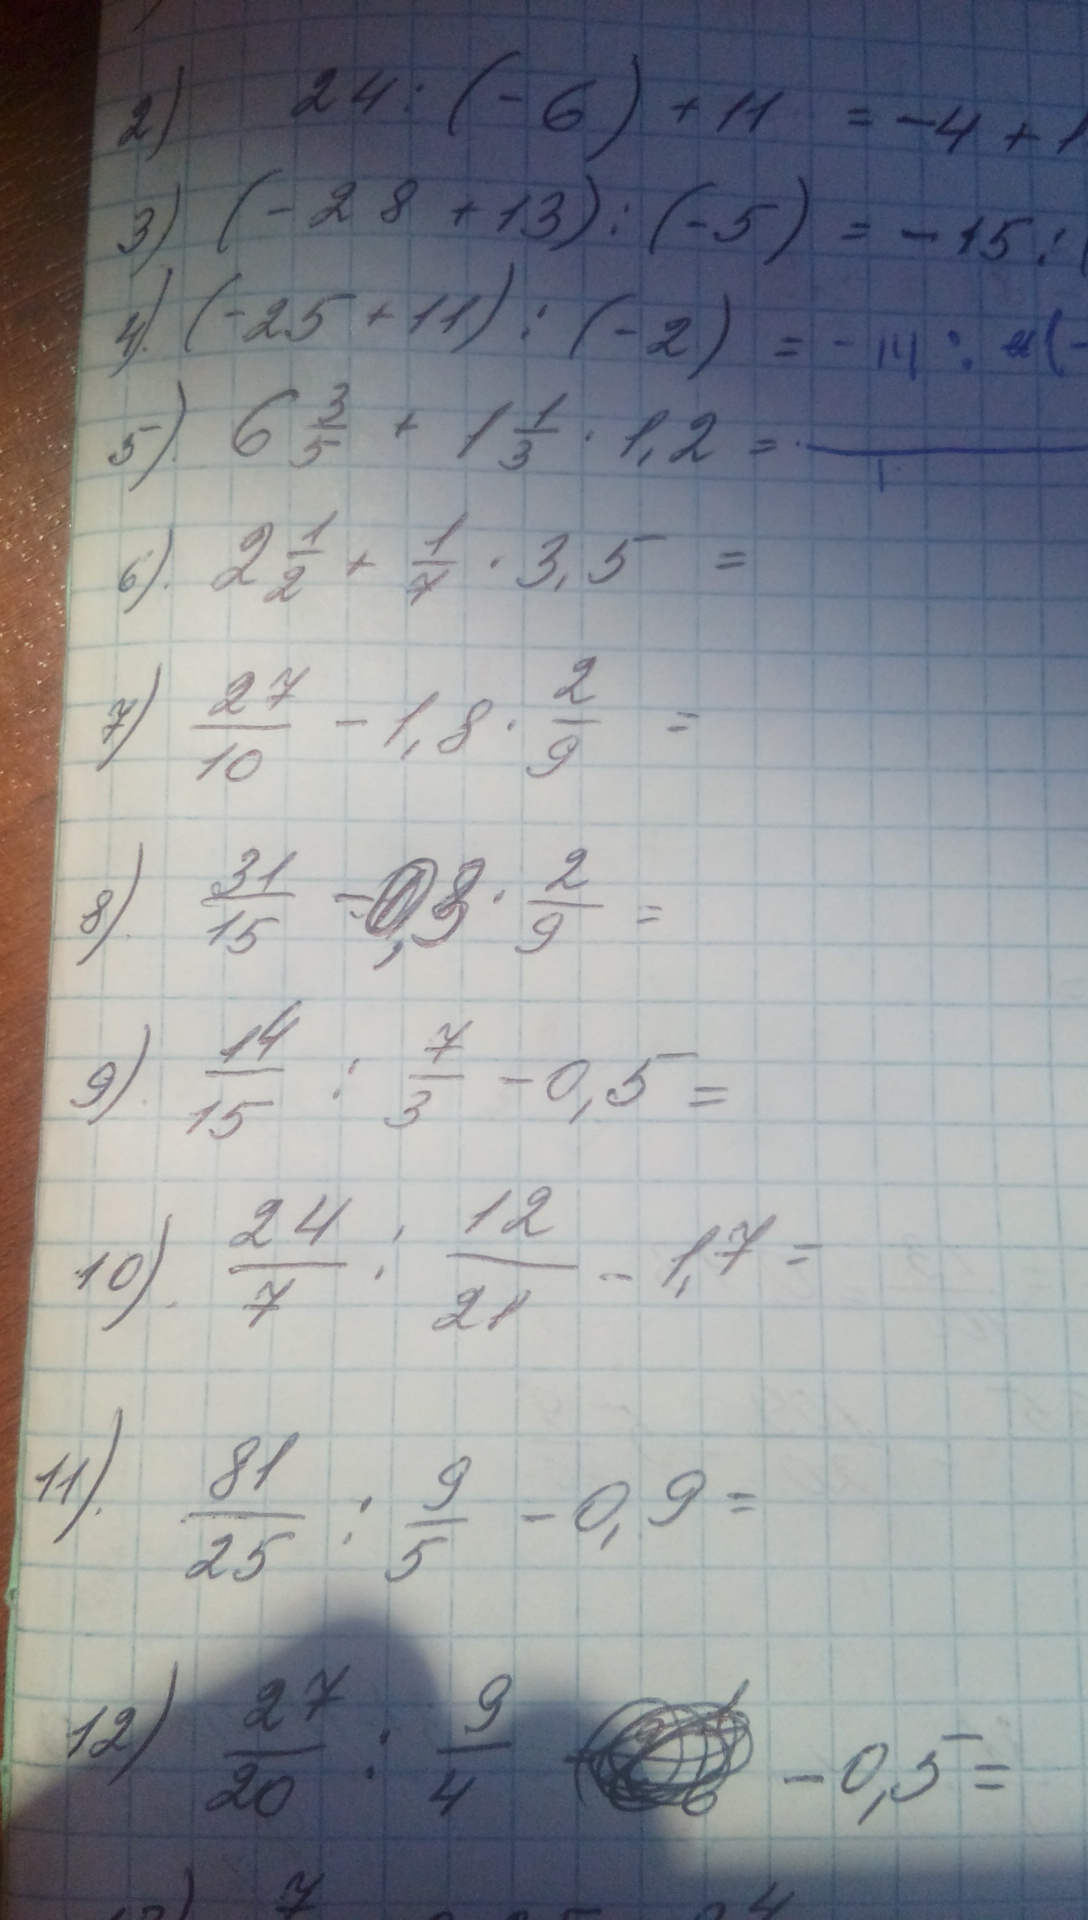 2) 24 : (-6) + 11 = -4 + 1
3) (-28 + 13) : (-5) = -15 : (
4). (-25 + 11) : (-2) = -14 : (-
5). 6 3/5 + 1 1/3 · 1,2 =
6). 2 1/2 + 1/7 · 3,5 =
7) 27/10 - 1,8 · 2/9 =
8). 31/15 - 0,3 · 2/9 =
9). 14/15 : 7/3 - 0,5 =
10). 24/7 : 12/21 - 1,7 =
11). 81/25 : 9/5 - 0,9 =
12) 27/20 : 9/4 - 0,5 =